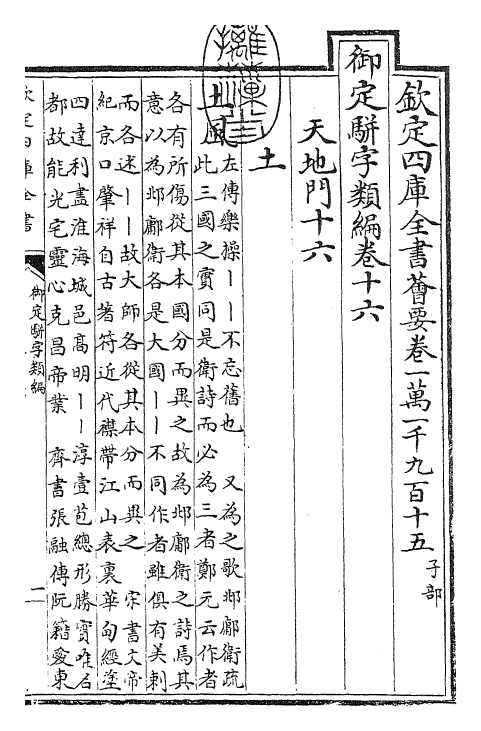 欽定四庫全書薈要卷一萬一千九百十五 子部
御定駢字類編卷十六
天地門十六
土
土風 左傳樂操丨丨不忘舊也 又為之歌邶鄘衛疏
此三國之實同是衛詩而必為三者鄭元云作者
各有所傷從其本國分而異之故為邶鄘衛之詩焉其
意以為邶鄘衛各是大國丨丨不同作者雖俱有美刺
而各述丨丨故大師各從其本分而異之 宋書文帝
紀京口肇祥自古著符近代襟帶江山表裏華甸經塗
四達利盡淮海城邑高明丨丨淳壹苞總形勝實唯名
都故能光宅靈心克昌帝業 齊書張融傳阮籍愛東
欽定四庫全書
御定駢字類編